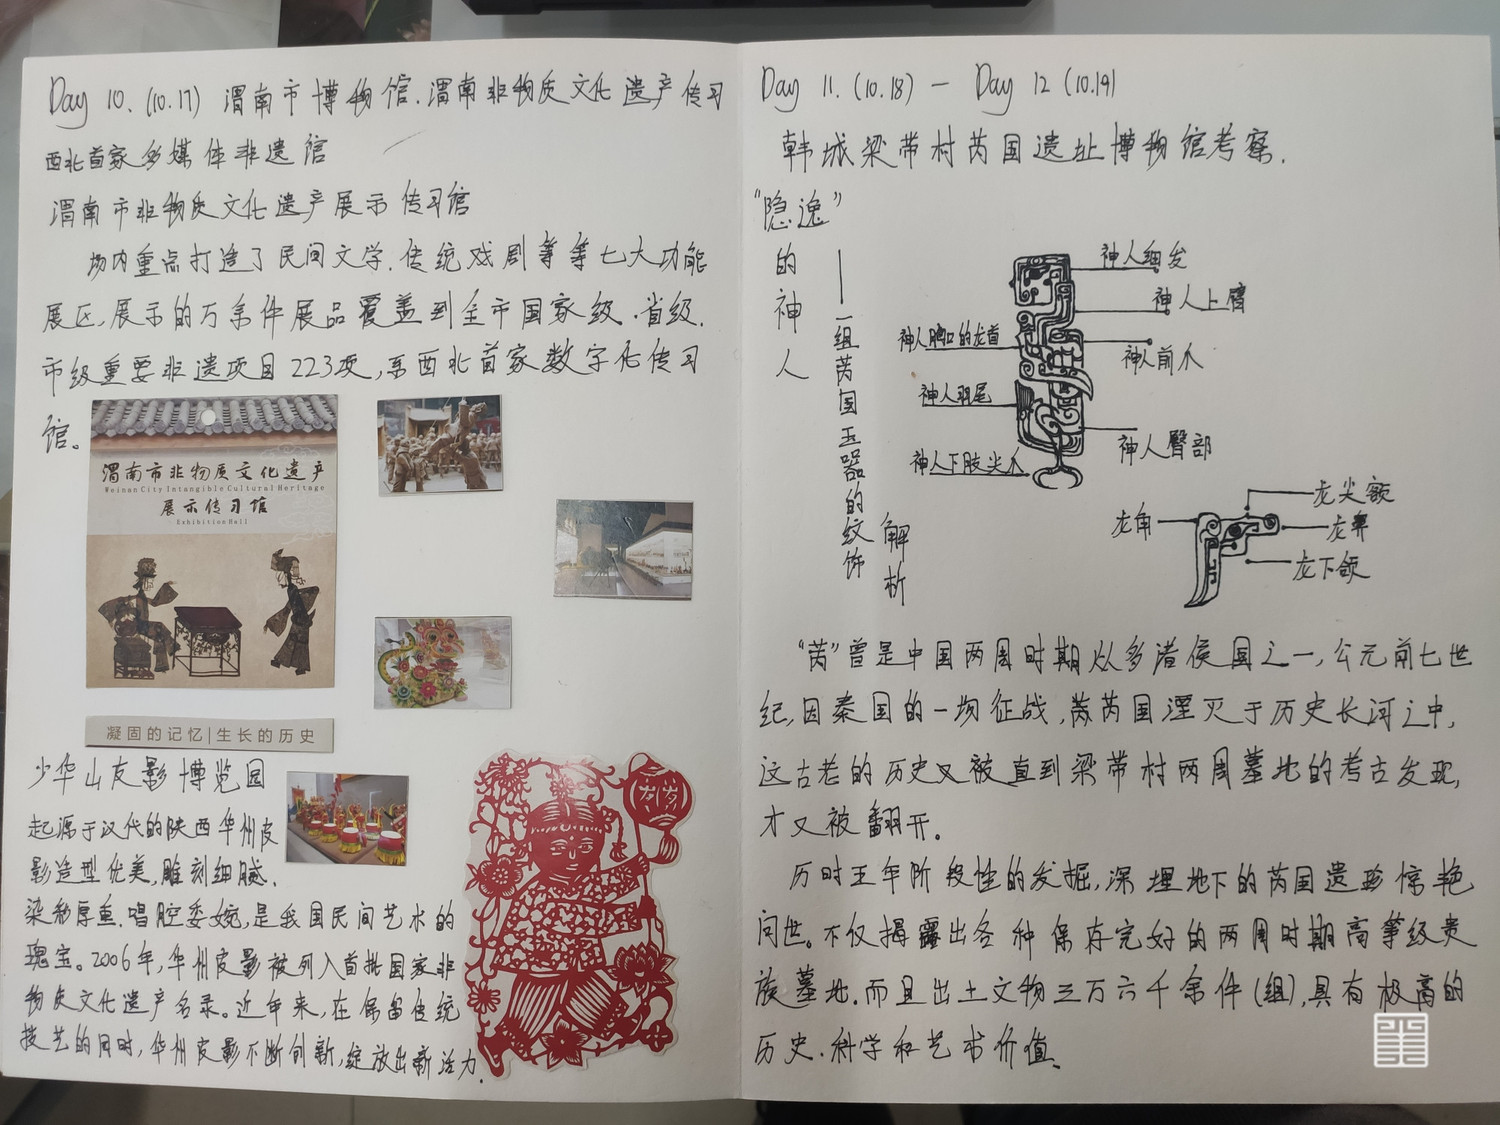 Day 10. (10.17) 渭南市博物馆.渭南非物质文化遗产传习
西北首家多媒体非遗馆
渭南市非物质文化遗产展示传习馆
场内重点打造了民间文学.传统戏剧等等七大功能
展区,展示的万余件展品覆盖到全市国家级.省级.
市级重要非遗项目223项,系西北首家数字化传习
馆。
渭南市非物质文化遗产
Weinan City Intangible Cultural Heritage
展示传习馆
Exhibition Hall
凝固的记忆|生长的历史
少华山皮影博览园
起源于汉代的陕西华州皮
影造型优美,雕刻细腻.
染彩厚重.唱腔委婉,是我国民间艺术的
瑰宝。2006年,华州皮影被列入首批国家非
物质文化遗产名录。近年来,在保留传统
技艺的同时,华州皮影不断创新,绽放出新活力.
岁岁
Day 11. (10.18) — Day 12 (10.19)
韩城梁带村芮国遗址博物馆考察.
“隐逸”
的神人
——一组芮国玉器的纹饰
解析
神人细发
神人上臂
神人胸口的龙首
神人前爪
神人羽尾
神人臀部
神人下肢尖爪
龙尖额
龙角
龙鼻
龙下颌
“芮”曾是中国两周时期众多诸侯国之一,公元前七世
纪,因秦国的一场征战,芮国湮灭于历史长河之中,
这古老的历史又被直到梁带村两周墓地的考古发现,
才又被翻开。
历时五年阶段性的发掘,深埋地下的芮国遗珍惊艳
问世。不仅揭露出各种保存完好的两周时期高等级贵
族墓地.而且出土文物三万六千余件(组),具有极高的
历史.科学和艺术价值.